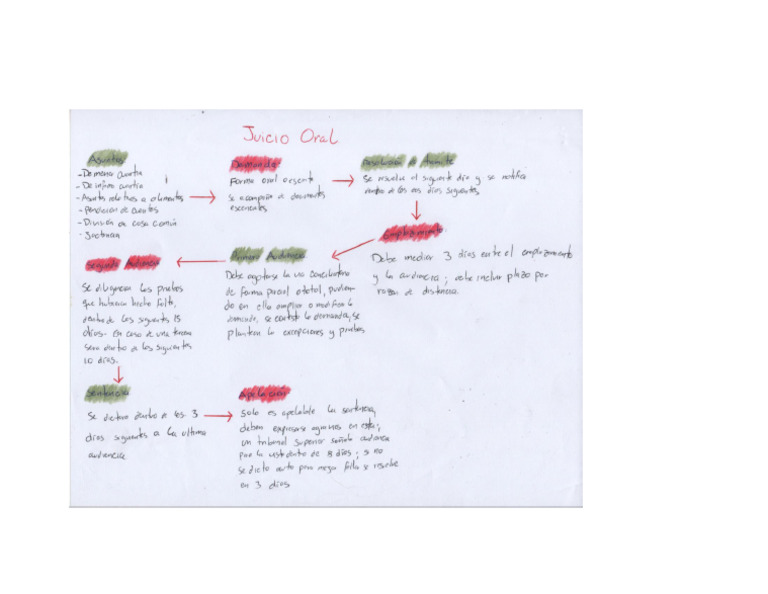 Juicio Oral
Asuntos
- De menor cuantía
- De infima cuantía
- Asuntos relativos a alimentos
- Rendición de cuentas
- División de cosa común
- Jactancia
Demanda
Forma oral o escrita
Se acompaña de documentos
escenciales
Resolución de Tramite
Se resuelve el siguiente día y se notifica
dentro de los dos días siguientes
Emplazamiento
Debe mediar 3 días entre el emplazamiento
y la audiencia; debe incluir plazo por
razón de distancia.
Primera Audiencia
Debe agotarse la via conciliatoria
de forma parcial o total, pudien-
do en ella ampliar o modificar la
demanda, se contesta la demanda, se
plantean las excepciones y pruebas
Segunda Audiencia
Se diligencian las pruebas
que hubieran hecho falta,
dentro de los siguientes 15
días. En caso de una tercera
sera dentro de los siguientes
10 días.
Sentencia
Se dictara dentro de los 3
días siguientes a la ultima
audiencia
Apelación
Solo es apelable la sentencia,
deben expresarse agravios en esta;
un tribunal Superior señala audiencia
para la vista dentro de 8 días; si no
se dicto auto para mejor fallo se resuelve
en 3 días